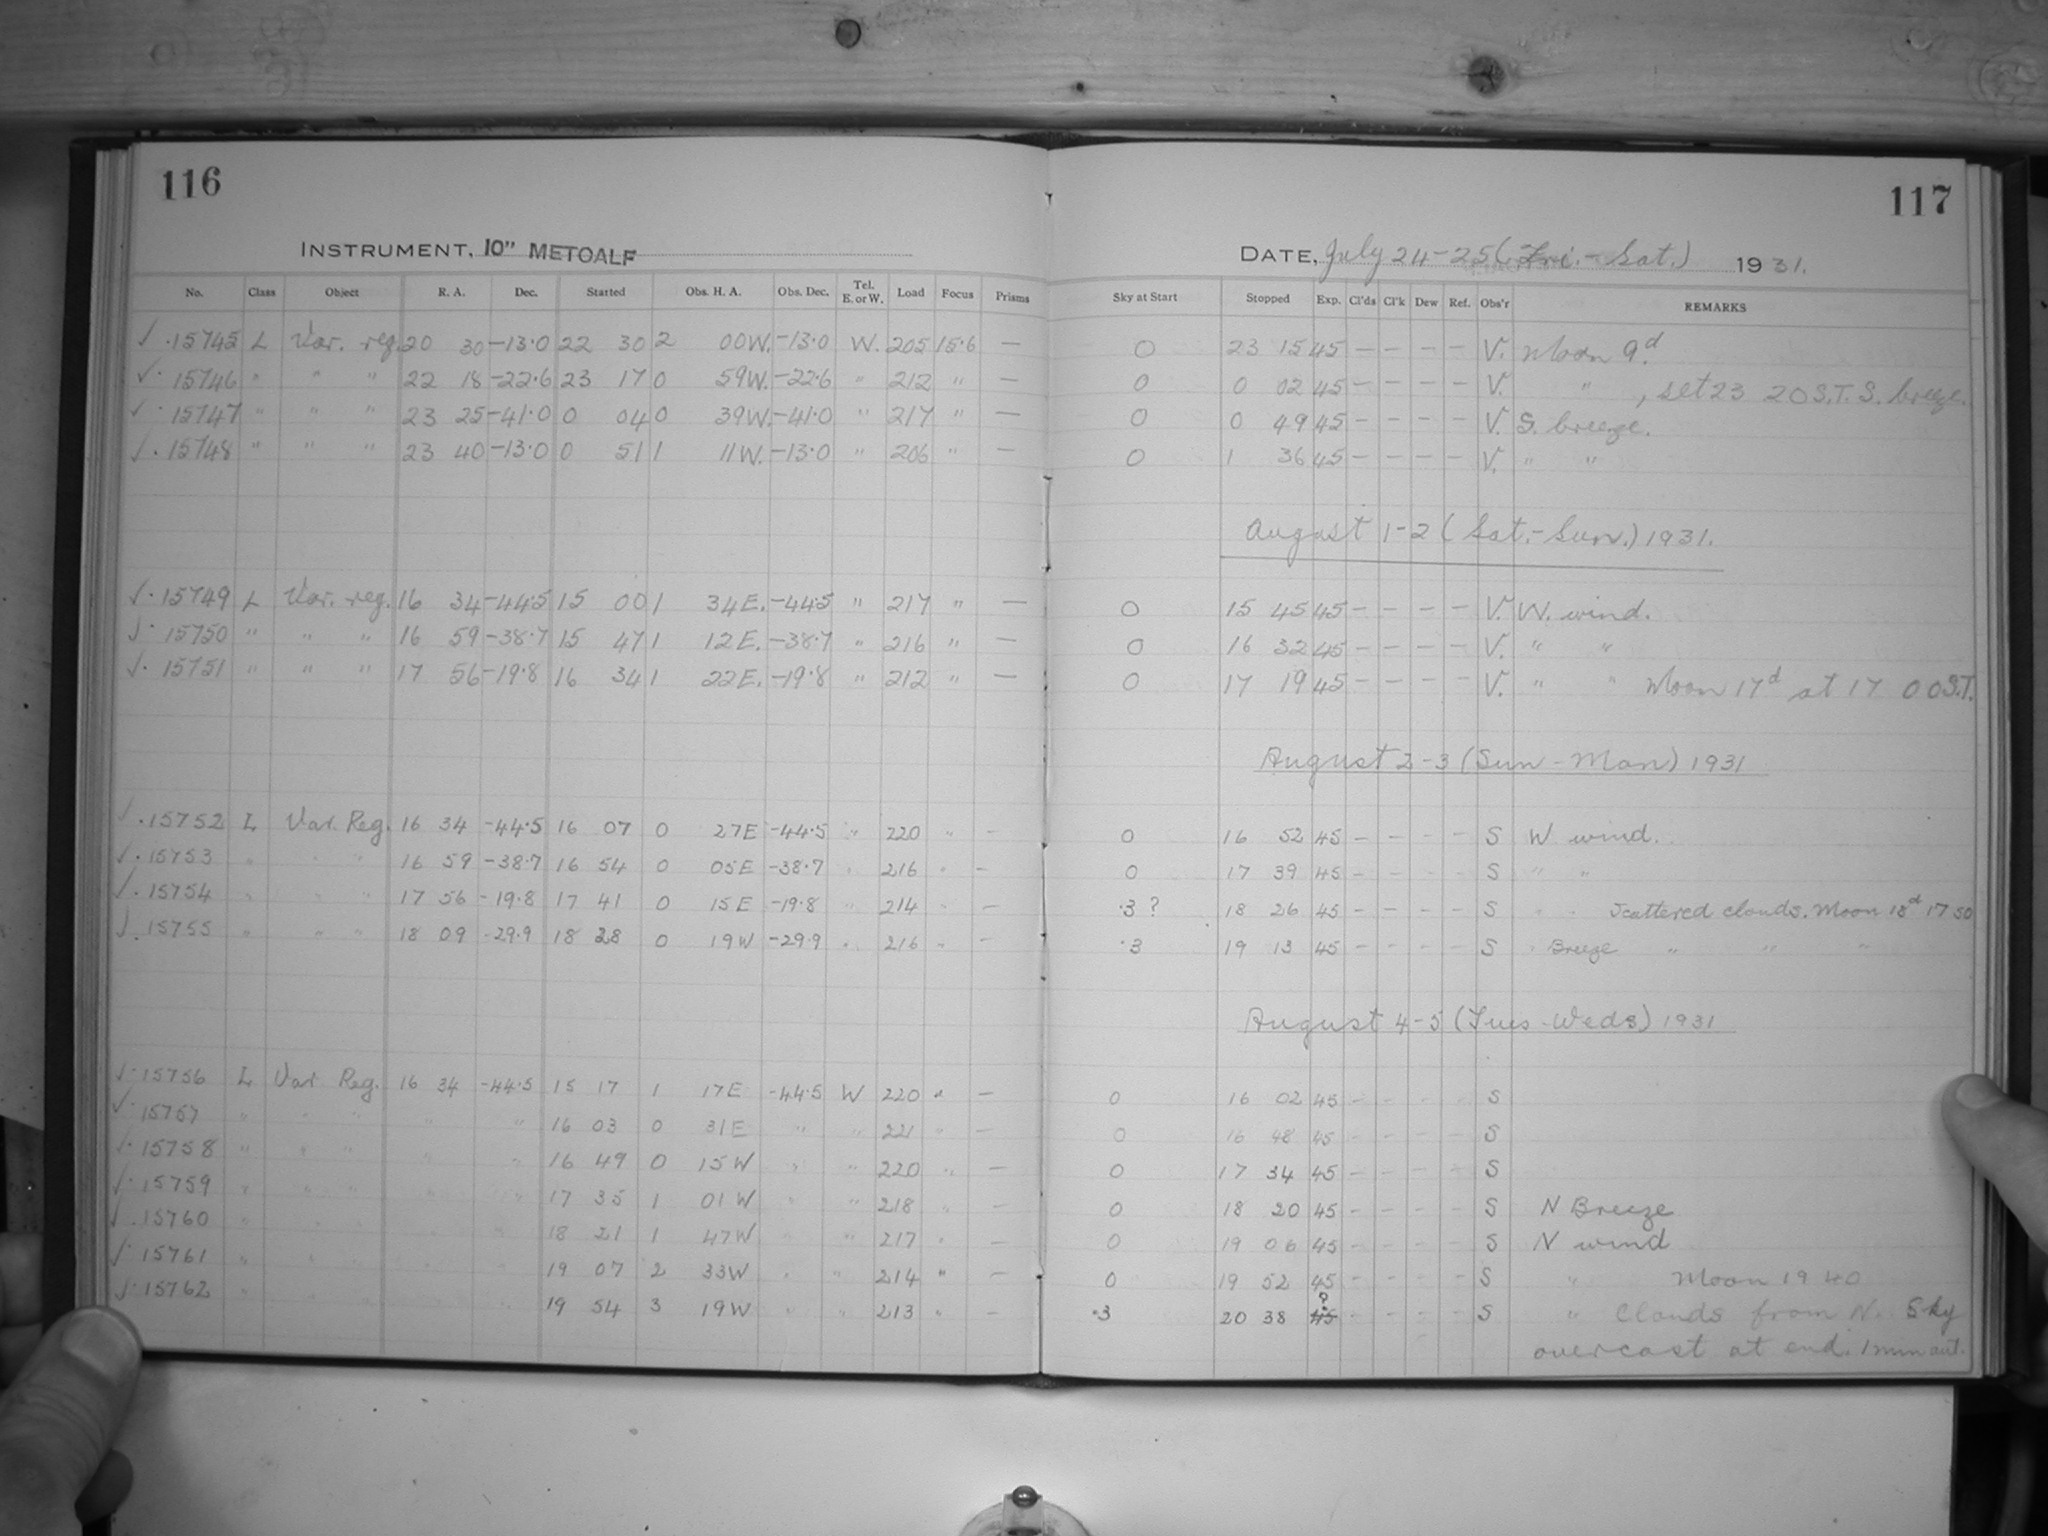 116
117
INSTRUMENT, 10" METCALF
DATE, July 24-25 (Fri. - Sat.) 1931.
No. Class Object R. A. Dec. Started Obs. H. A. Obs. Dec. Tel. E. or W. Load Focus Prisms Sky at Start Stopped Exp. Cl'ds Cl'k Dew Ref. Obs'r REMARKS
√ · 15745 L Var. reg. 20 30 -13.0 22 30 2 00W. -13.0 W. 205 15.6 — 0 23 15 45 - - - - V. Moon 9d.
√ · 15746 " " " 22 18 -22.6 23 17 0 59W. -22.6 " 212 " — 0 0 02 45 - - - - V. " , set 23 20 S.T. S. breeze.
√ · 15747 " " " 23 25 -41.0 0 04 0 39W. -41.0 " 217 " — 0 0 49 45 - - - - V. S. breeze.
√ · 15748 " " " 23 40 -13.0 0 51 1 11W. -13.0 " 206 " — 0 1 36 45 - - - - V. " "
August 1-2 (Sat. - Sun.) 1931.
√ · 15749 L Var. reg. 16 34 -44.5 15 00 1 34E. -44.5 " 217 " — 0 15 45 45 - - - - V. W. wind.
√ · 15750 " " " 16 59 -38.7 15 47 1 12E. -38.7 " 216 " — 0 16 32 45 - - - - V. " "
√ · 15751 " " " 17 56 -19.8 16 34 1 22E. -19.8 " 212 " — 0 17 19 45 - - - - V. " " Moon 17d at 17 00 S.T.
August 2-3 (Sun - Mon) 1931
√ · 15752 L Var. Reg. 16 34 -44.5 16 07 0 27E -44.5 " 220 " - 0 16 52 45 - - - - S W wind.
√ · 15753 " " " 16 59 -38.7 16 54 0 05E -38.7 " 216 " - 0 17 39 45 - - - - S " "
√ · 15754 " " " 17 56 -19.8 17 41 0 15E -19.8 " 214 " - .3 ? 18 26 45 - - - - S " " Scattered clouds. Moon 18d 17 50
√ · 15755 " " " 18 09 -29.9 18 28 0 19W -29.9 " 216 " - .3 19 13 45 - - - - S " Breeze " " "
August 4-5 (Tues - Weds) 1931
√ · 15756 L Var Reg. 16 34 -44.5 15 17 1 17E -44.5 W 220 " - 0 16 02 45 - - - - S
√ · 15757 " " " " " 16 03 0 31E " " 221 " - 0 16 48 45 - - - - S
√ · 15758 " " " " " 16 49 0 15W " " 220 " - 0 17 34 45 - - - - S
√ · 15759 " " " " " 17 35 1 01W " " 218 " - 0 18 20 45 - - - - S N Breeze
√ · 15760 " " " " " 18 21 1 47W " " 217 " - 0 19 06 45 - - - - S N wind
√ · 15761 " " " " " 19 07 2 33W " " 214 " - 0 19 52 45 - - - - S " Moon 19 40
√ · 15762 " " " " " 19 54 3 19W " " 213 " - .3 20 38 45 ? - - - - S " Clouds from N. Sky
overcast at end. 1 min out.